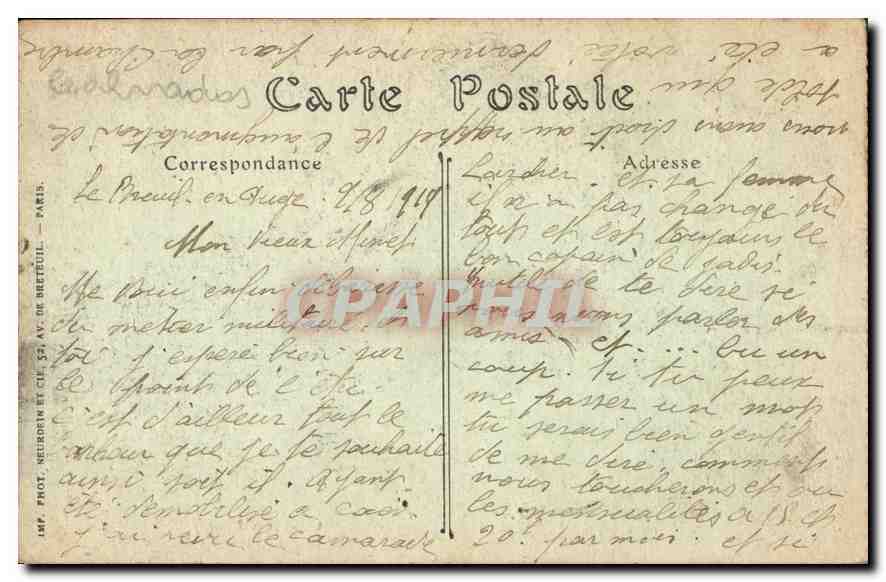 Calvados
Carte Postale
Correspondance
Adresse
Le Breuil-en-Auge. 9/8 1919
Mon Vieux Minet
Me voici enfin débarrassé
du métier militaire. Et
toi j'espere bien sur
le point de l'être
c'est d'ailleur tout le
bonheur que je te souhaite
ainsi soit il. Ayant
été démobilisé a Caen
j'ai revu le camarade
Lardier et sa femme
il n'a pas changé du
tout et est toujours le
bon copain de jadis.
Inutile de te dire si
nous avons parler des
amis et.... bu un
coup. Si tu peux
me passer un mot
tu serais bien gentil
de me dire comment
nous toucherons et ou
les mensualités a 15 et
20 par mois. et si
nous avons droit au rappel de l'augmentation de
solde qui
a été votée dernierement par la Chambre
IMP. PHOT. NEURDEIN ET CIE, 52, AV. DE BRETEUIL. — PARIS.
CPAPHIL